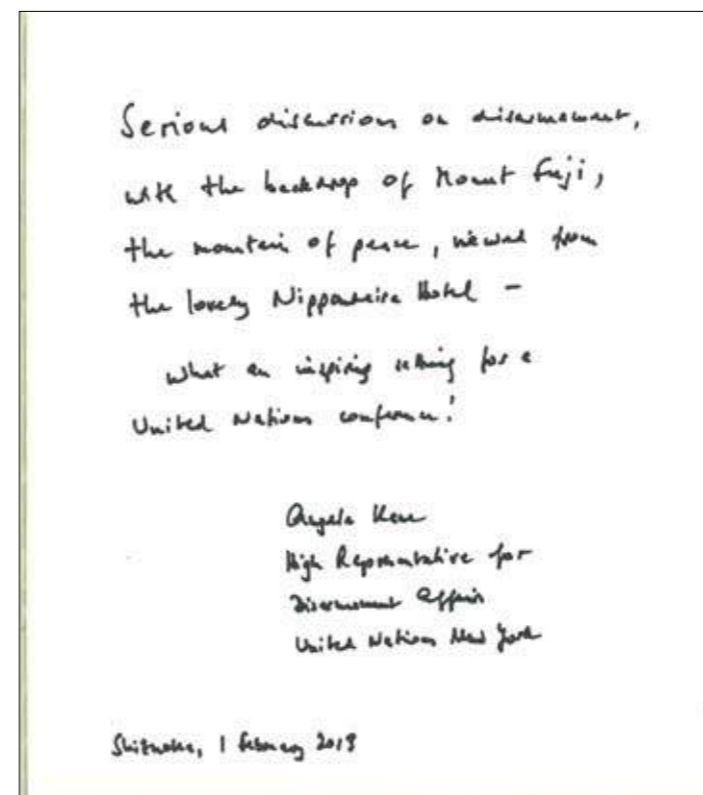 Serious discussions on disarmament,
with the backdrop of Mount Fuji,
the mountain of peace, viewed from
the lovely Nippondaira Hotel –
What an inspiring setting for a
United Nations conference!
Angela Kane
High Representative for
Disarmament Affairs
United Nations New York
Shizuoka, 1 February 2013